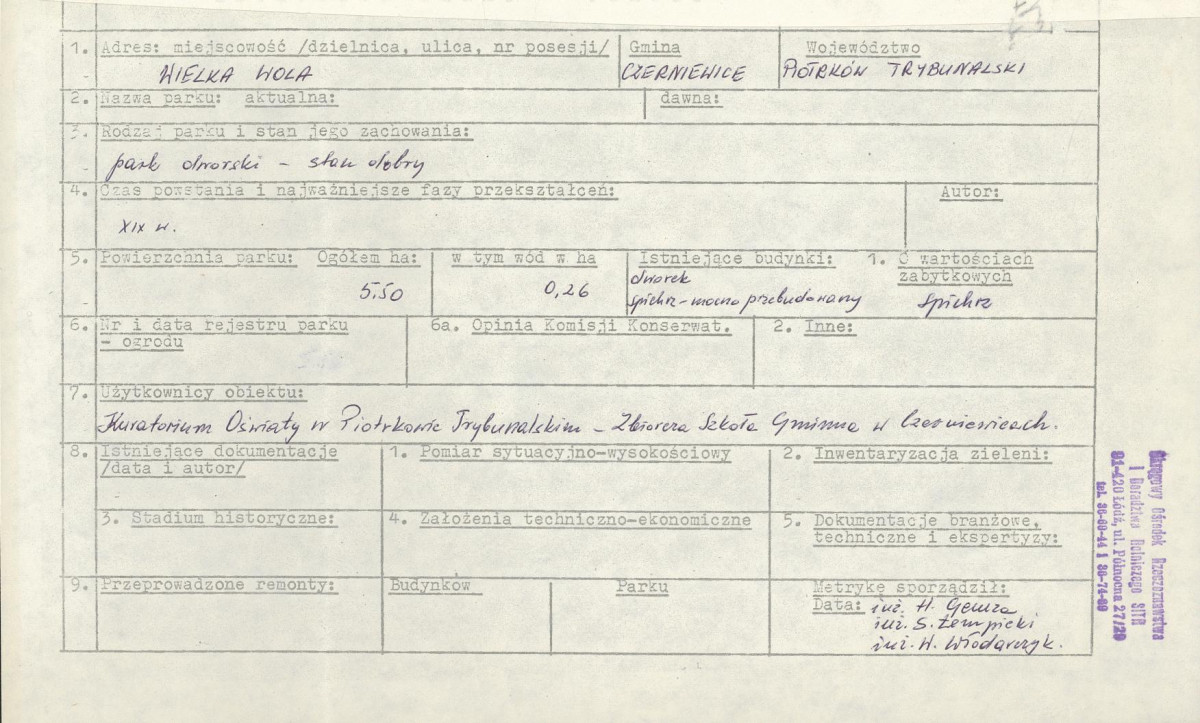 1. Adres: miejscowość /dzielnica, ulica, nr posesji/ Gmina Województwo
WIELKA WOLA CZERNIEWICE PIOTRKÓW TRYBUNALSKI
2. Nazwa parku: aktualna: dawna:
3. Rodzaj parku i stan jego zachowania:
park dworski - stan dobry
4. Czas powstania i najważniejsze fazy przekształceń: Autor:
XIX w.
5. Powierzchnia parku: Ogółem ha: w tym wód w ha Istniejące budynki: 1. O wartościach
zabytkowych
5.50 0,26 dworek
spichrz - mocno przebudowany spichrz
6. Nr i data rejestru parku 6a. Opinia Komisji Konserwat. 2. Inne:
- ogrodu
7. Użytkownicy obiektu:
Kuratorium Oświaty w Piotrkowie Trybunalskim - Zbiorcza Szkoła Gminna w Czerniewicach.
8. Istniejące dokumentacje 1. Pomiar sytuacyjno-wysokościowy 2. Inwentaryzacja zieleni:
/data i autor/
3. Stadium historyczne: 4. Założenia techniczno-ekonomiczne 5. Dokumentacje branżowe,
techniczne i ekspertyzy:
9. Przeprowadzone remonty: Budynków Parku Metrykę sporządził:
Data: inż. H.
inż. S. Łempicki
inż. H. Włodarczyk.
Okręgowy Ośrodek Rzeczoznawstwa
i Doradztwa Rolniczego SITR
91-420 Łódź, ul. Północna 27/29
tel. 36-60-44 i 36-74-69